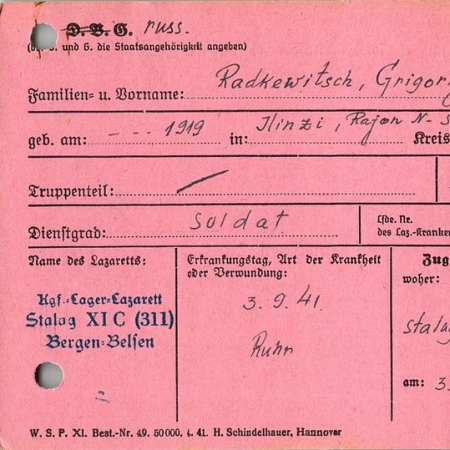 D. B. G. russ.
(bei B. und G. die Staatsangehörigkeit angeben)
Familien= u. Vorname: Radkewitsch, Grigor
geb. am: - - . 1919 in: Ilinzi, Rajon N-S Kreis
Truppenteil: /
Dienstgrad: Soldat Lfde. Nr.
des Laz.-Kranken
Name des Lazaretts:
Kgf.=Lager=Lazarett
Stalag XI C (311)
Bergen=Belsen
Erkrankungstag, Art der Krankheit
oder Verwundung:
3. 9. 41.
Ruhr
Zug
woher:
Stalag
am: 3.
W. S. P. XI. Best.-Nr. 49. 50000. 4. 41. H. Schindelhauer, Hannover